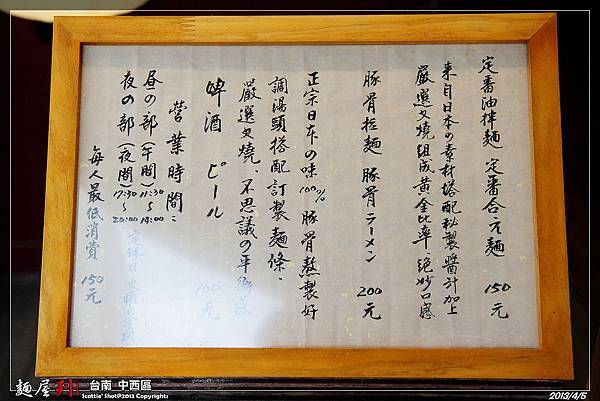 定番油拌麵 定番合え麵 150元
來自日本の素材搭配秘製醬汁加上
嚴選叉燒組成黃金比率、絕妙口感
豚骨拉麵 豚骨ラーメン 200元
正宗日本の味100% 豚骨熬製好
調湯頭搭配訂製麵條、
嚴選叉燒、不思議の平衡感
啤酒 ビール 100元
營業時間:
昼の部(午間)11:30~14:00
夜の部(夜間)17:30~20:00
定休日 火曜日
每人最低消費 150元
麵屋 台南 中西區
Scottie' Shot@2013 Copyright:
2013/4/5